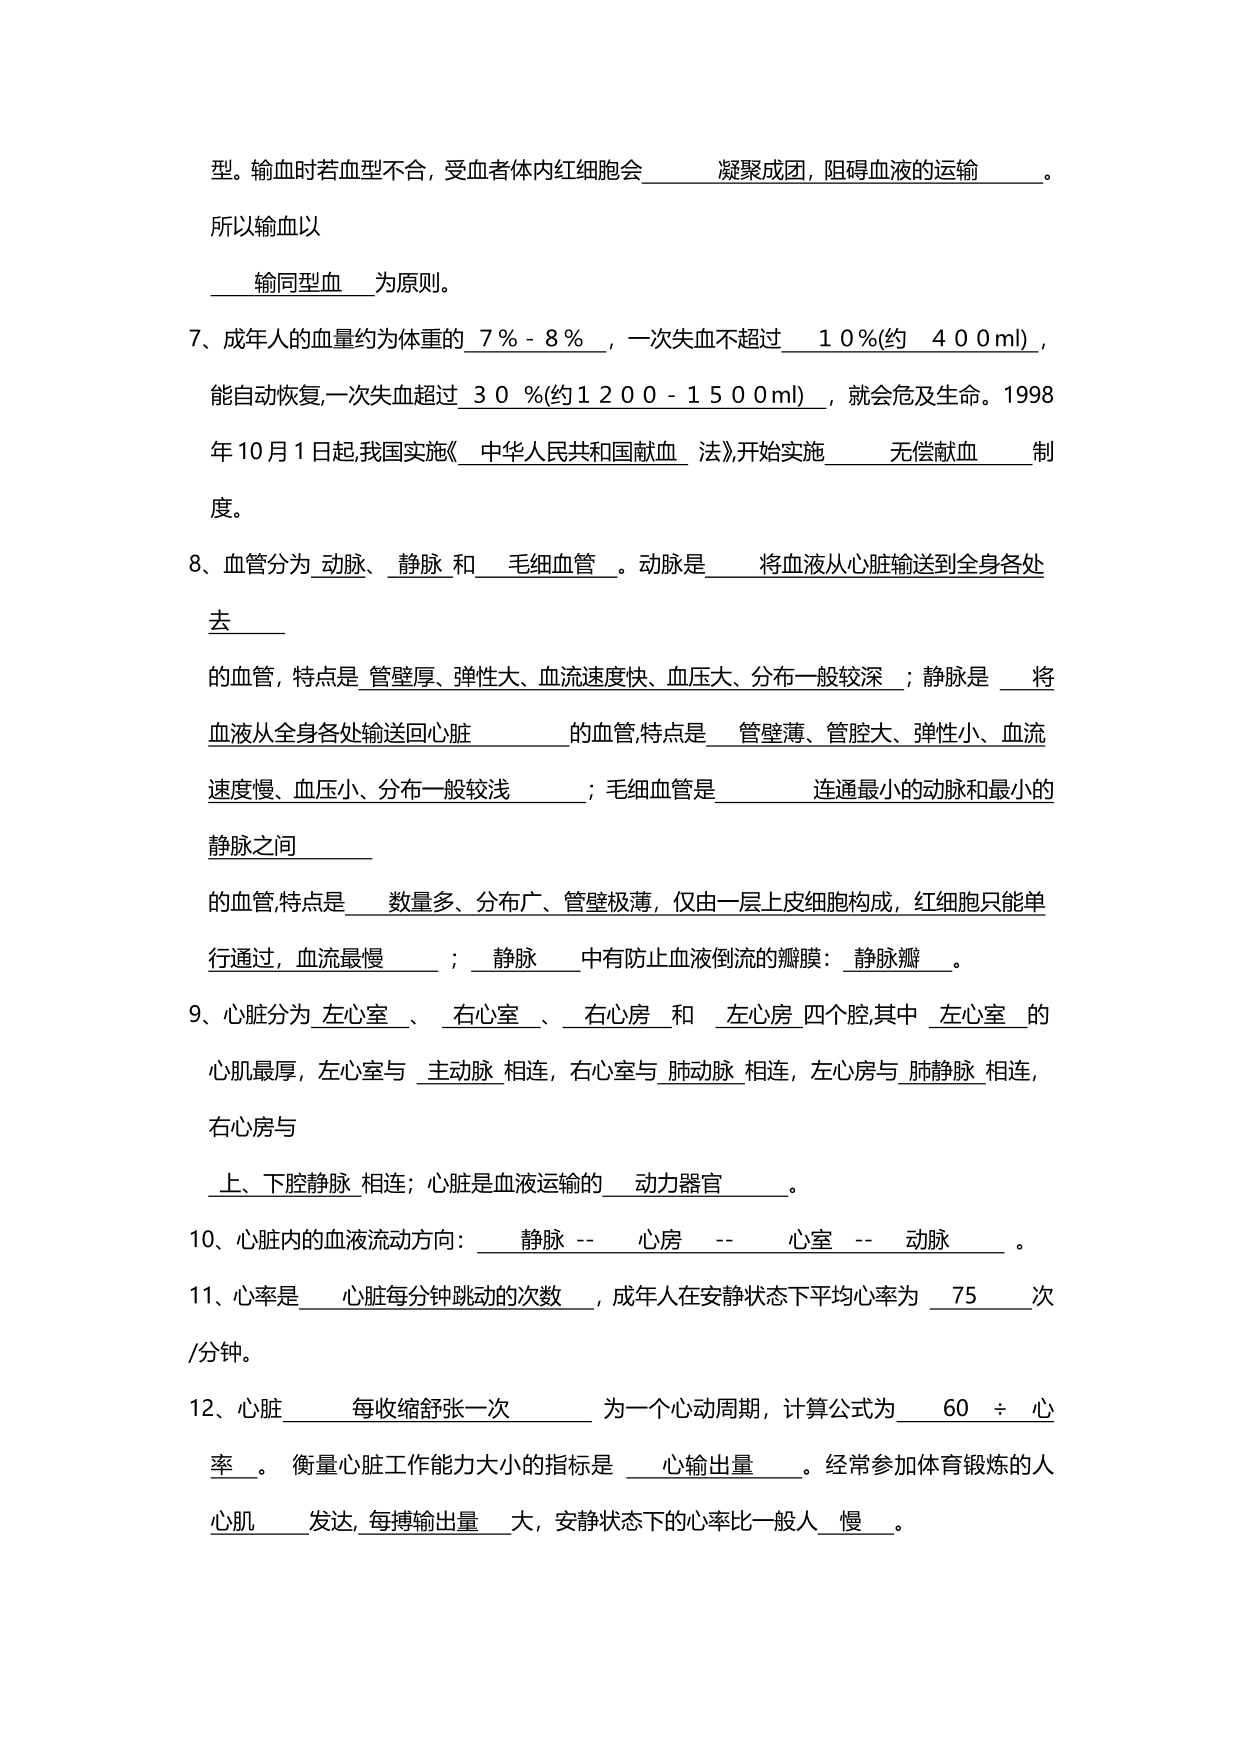 型。输血时若血型不合，受血者体内红细胞会 凝聚成团，阻碍血液的运输 。
所以输血以
输同型血 为原则。
7、成年人的血量约为体重的 ７％－８％ ，一次失血不超过 １０%(约 ４００ml) ，
能自动恢复,一次失血超过 ３０ %(约１２００－１５００ml) ，就会危及生命。1998
年 10 月 1 日起,我国实施《 中华人民共和国献血 法》,开始实施 无偿献血 制
度。
8、血管分为 动脉、 静脉 和 毛细血管 。动脉是 将血液从心脏输送到全身各处
去
的血管，特点是 管壁厚、弹性大、血流速度快、血压大、分布一般较深 ；静脉是 将
血液从全身各处输送回心脏 的血管,特点是 管壁薄、管腔大、弹性小、血流
速度慢、血压小、分布一般较浅 ；毛细血管是 连通最小的动脉和最小的
静脉之间
的血管,特点是 数量多、分布广、管壁极薄，仅由一层上皮细胞构成，红细胞只能单
行通过，血流最慢 ； 静脉 中有防止血液倒流的瓣膜： 静脉瓣 。
9、心脏分为 左心室 、 右心室 、 右心房 和 左心房 四个腔,其中 左心室 的
心肌最厚，左心室与 主动脉 相连，右心室与 肺动脉 相连，左心房与 肺静脉 相连，
右心房与
上、下腔静脉 相连；心脏是血液运输的 动力器官 。
10、心脏内的血液流动方向： 静脉 -- 心房 -- 心室 -- 动脉 。
11、心率是 心脏每分钟跳动的次数 ，成年人在安静状态下平均心率为 75 次
/分钟。
12、心脏 每收缩舒张一次 为一个心动周期，计算公式为 60 ÷ 心
率 。 衡量心脏工作能力大小的指标是 心输出量 。经常参加体育锻炼的人
心肌 发达, 每搏输出量 大，安静状态下的心率比一般人 慢 。